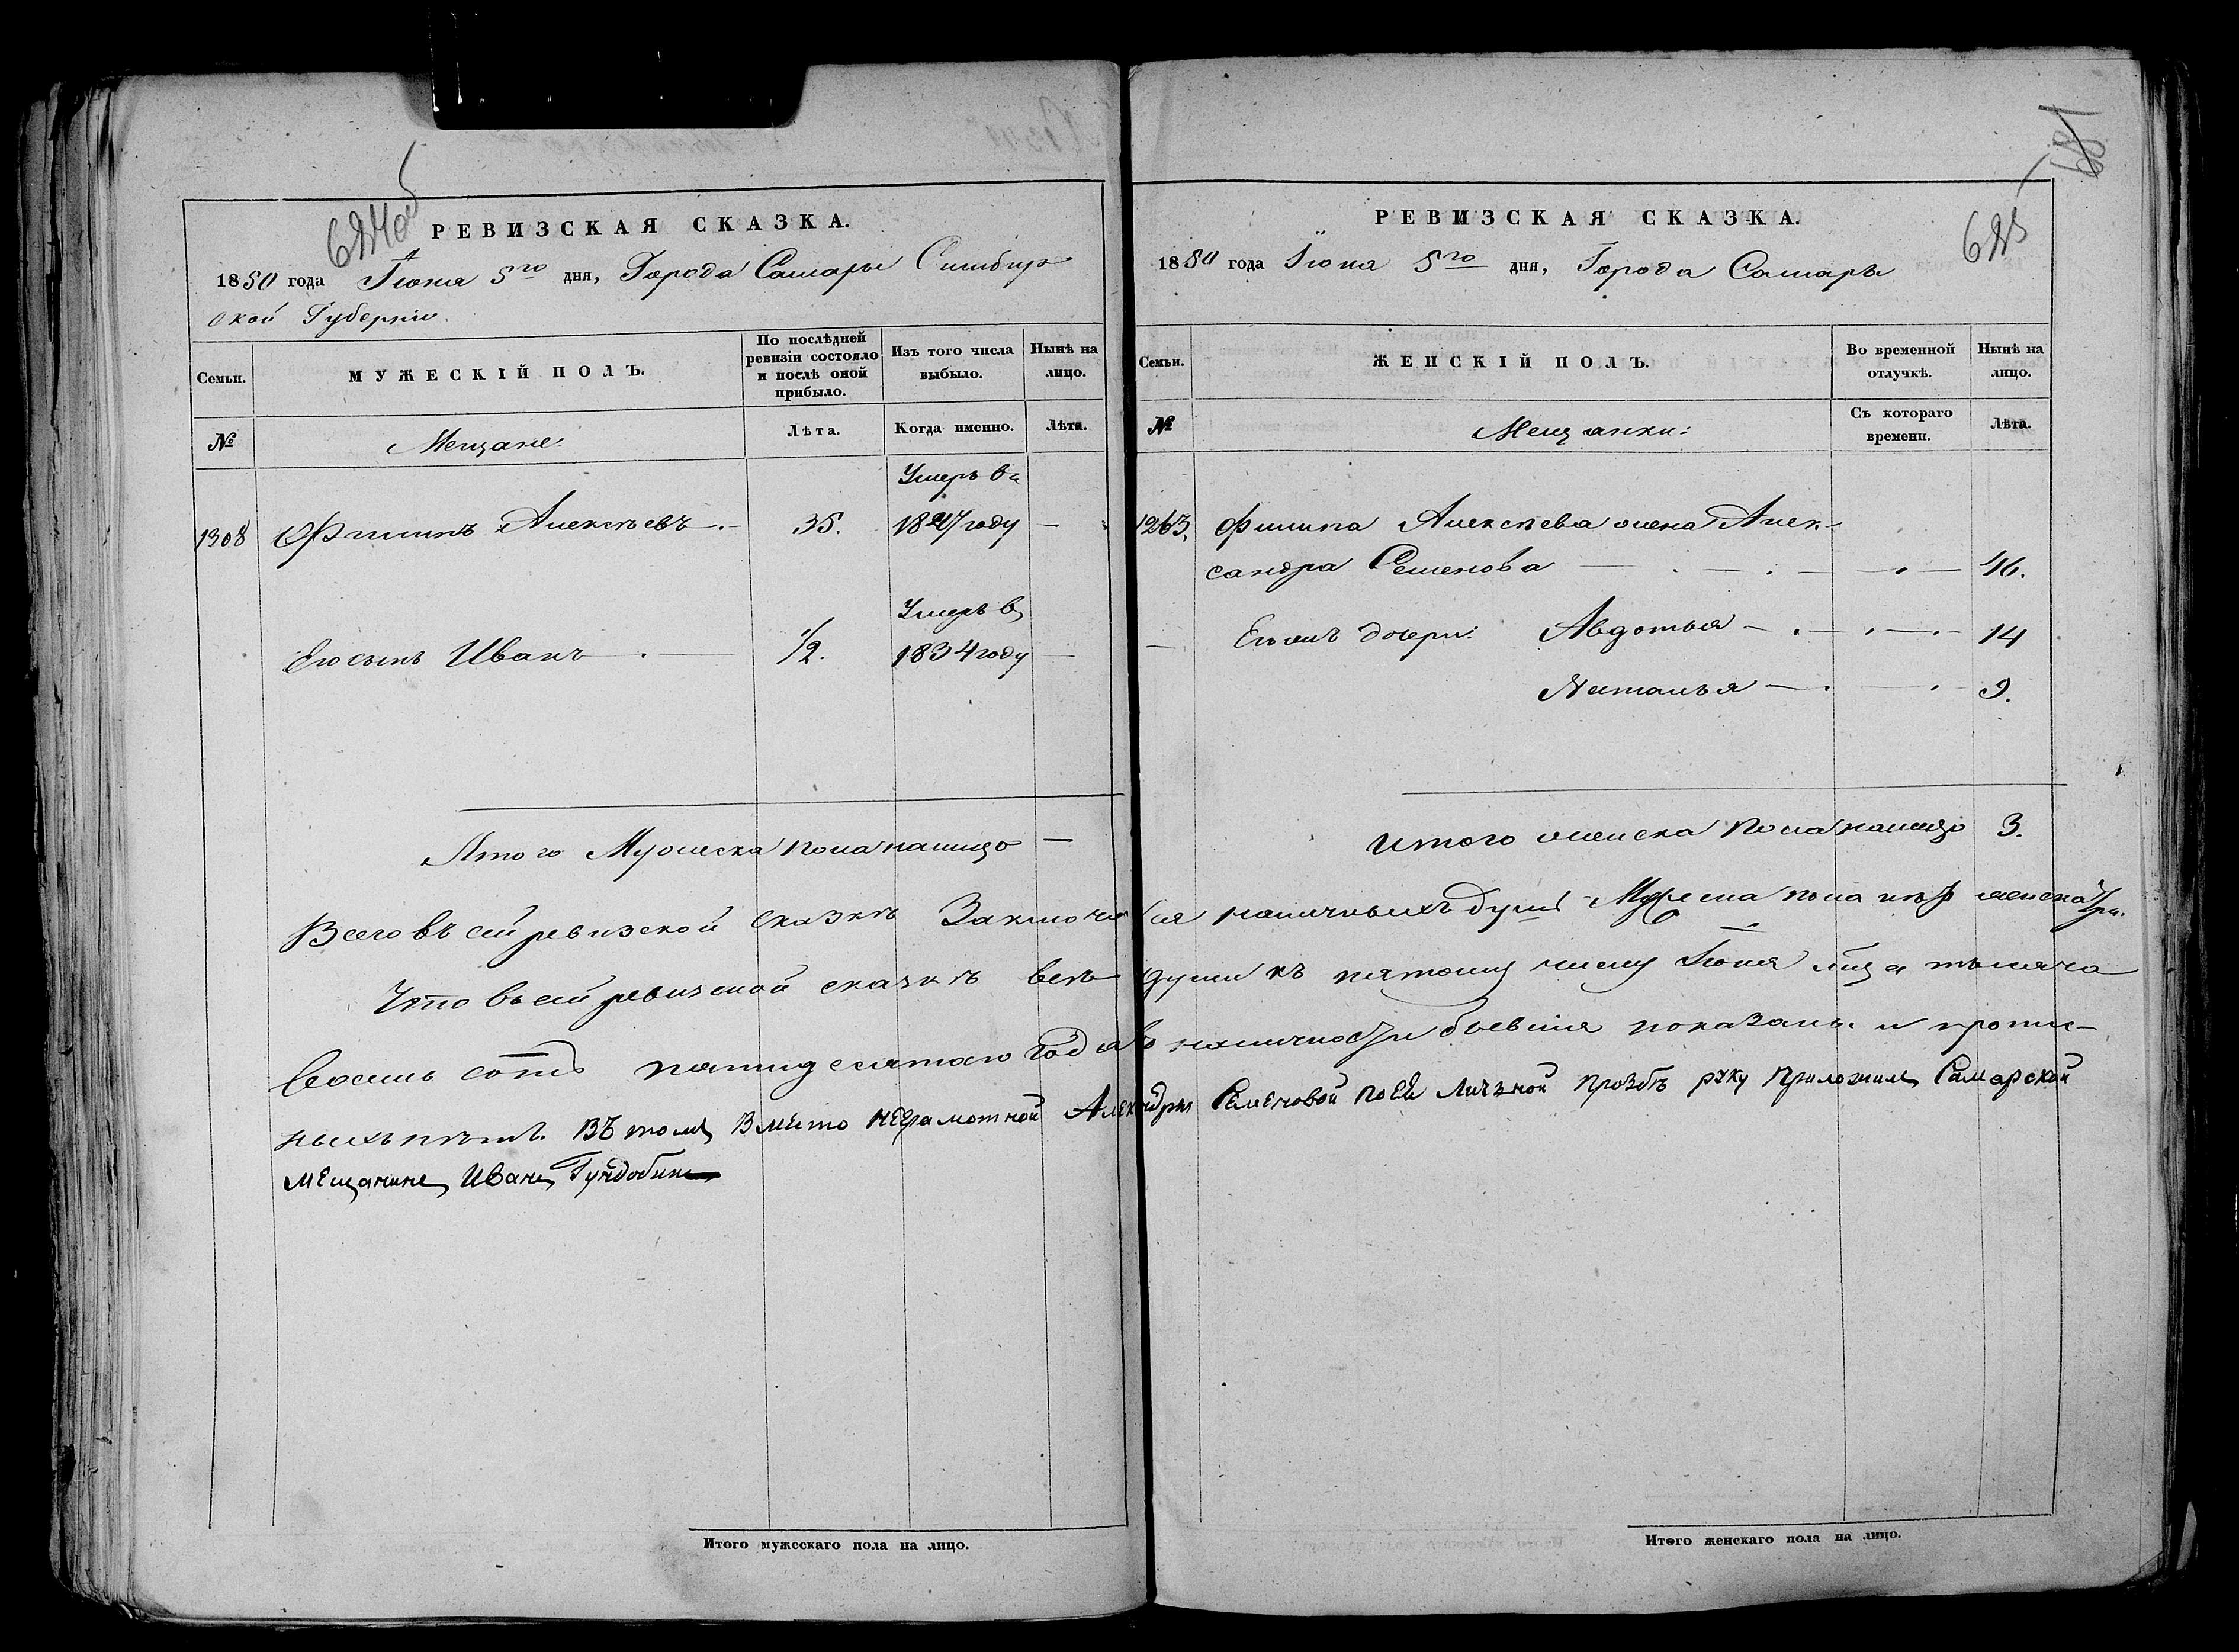 684об
РЕВИЗСКАЯ СКАЗКА.
1850 года Іюня 5го дня, Города Самары Симбир
ской Губерніи.
Семьи.
МУЖЕСКІЙ ПОЛЪ.
По послѣдней ревизіи состояло и послѣ оной прибыло.
Изъ того числа выбыло.
Нынѣ на лицо.
№
Мещане
Лѣта.
Когда именно.
Лѣта.
Умеръ в
1308 Филипъ Алексѣевъ 35. 1847 году —
Умеръ в
Его сынъ Иванъ 1/2. 1834 году —
Итого Мужеска пола налицо —
681
685
РЕВИЗСКАЯ СКАЗКА.
1850 года Іюня 5го дня, Города Самары
Семьи.
ЖЕНСКІЙ ПОЛЪ.
Во временной отлучкѣ.
Нынѣ на лицо.
№
Мещанки:
Съ котораго времени.
Лѣта.
1263. Филипа Алексѣева жена Алек-
сандра Семенова — 46.
— Ево жъ дочери: Авдотья — 14
Наталья — 9.
Итого женска пола налицо 3.
Всего въ сей ревизской сказкѣ Заключается наличныхъ душъ Мужеска пола нѣтъ женска три.
Что въ сей ревизской сказкѣ все души къ пятому числу Іюня тысяча
восемь сотъ пятидесятаго года в наличности бывшия показаны и пропис-
ныхъ нѣтъ. Въ томъ вмѣсто неграмотной Александры Семеновой по ей личной прозбѣ руку приложилъ Самарской
мещанинъ Иванъ Гундобинъ
Итого мужескаго пола на лицо.
Итого женскаго пола на лицо.